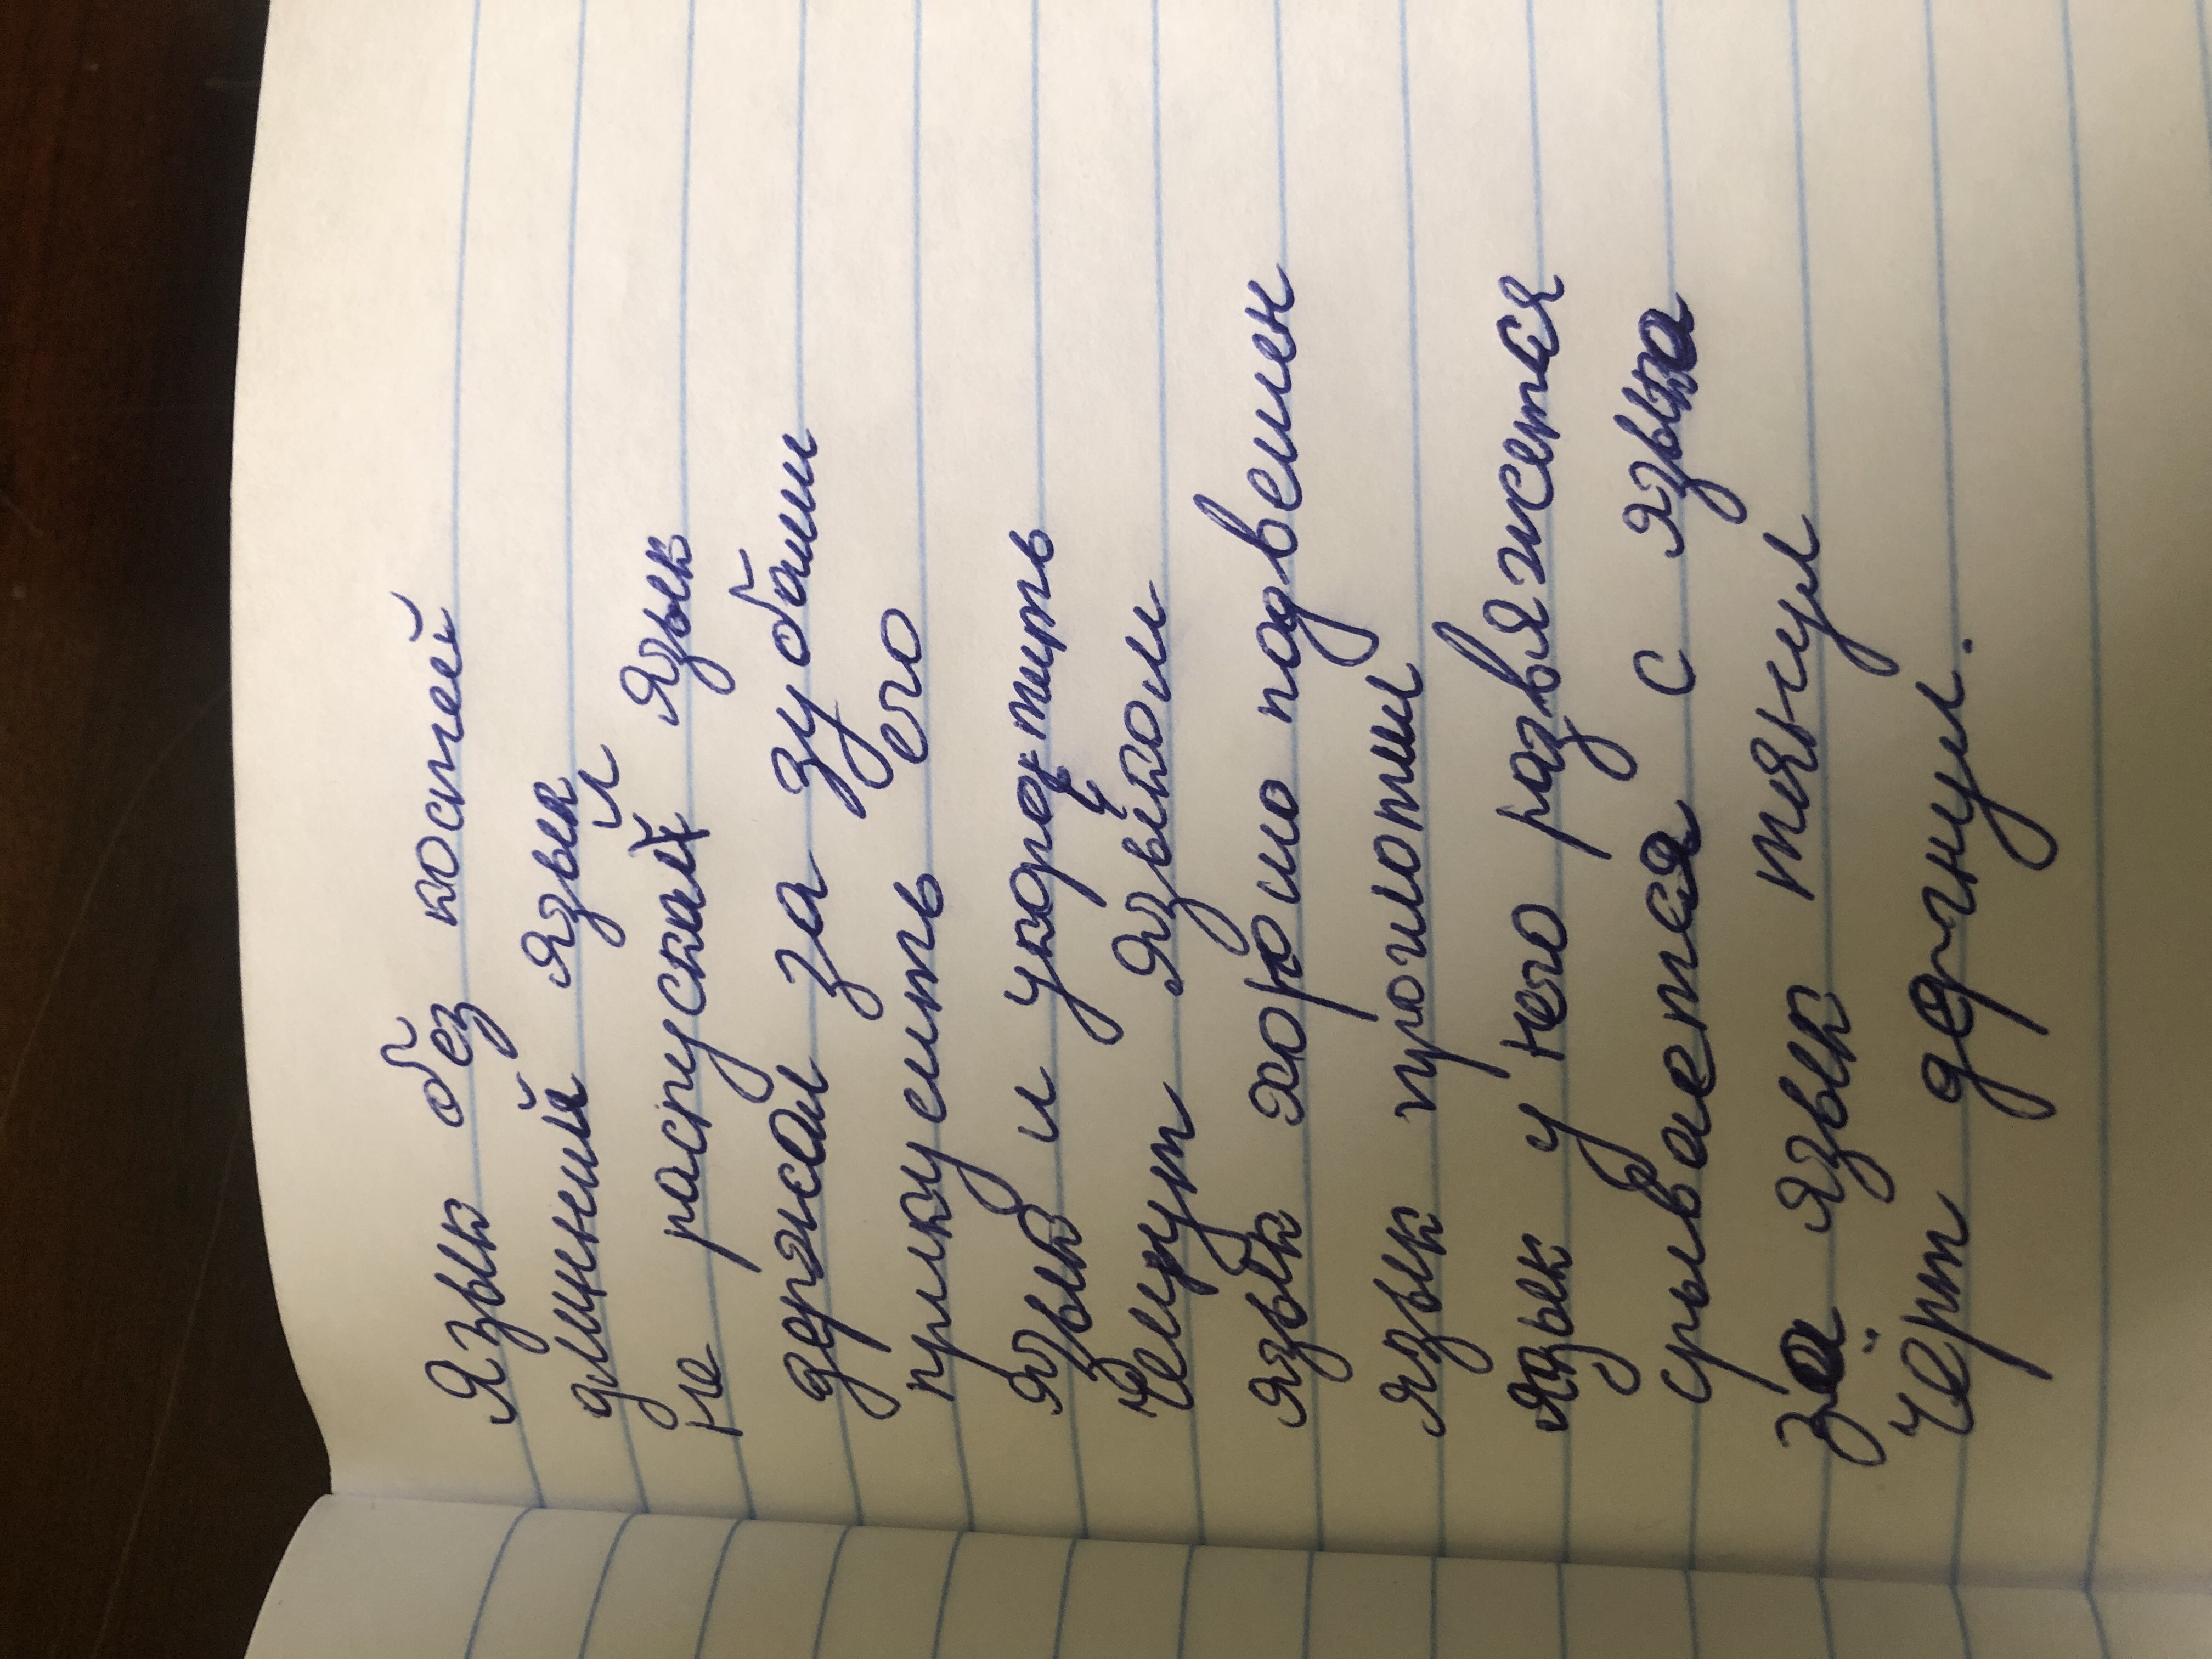 Язык без костей
длинный язык
не распускал язык
держал за зубами
прикусить его
язык и укоротить
Чешут языком
язык хорошо подвешен
язык проглотил
язык у него развяжется
срывается с языка
за язык тянул
Чёрт дёрнул.